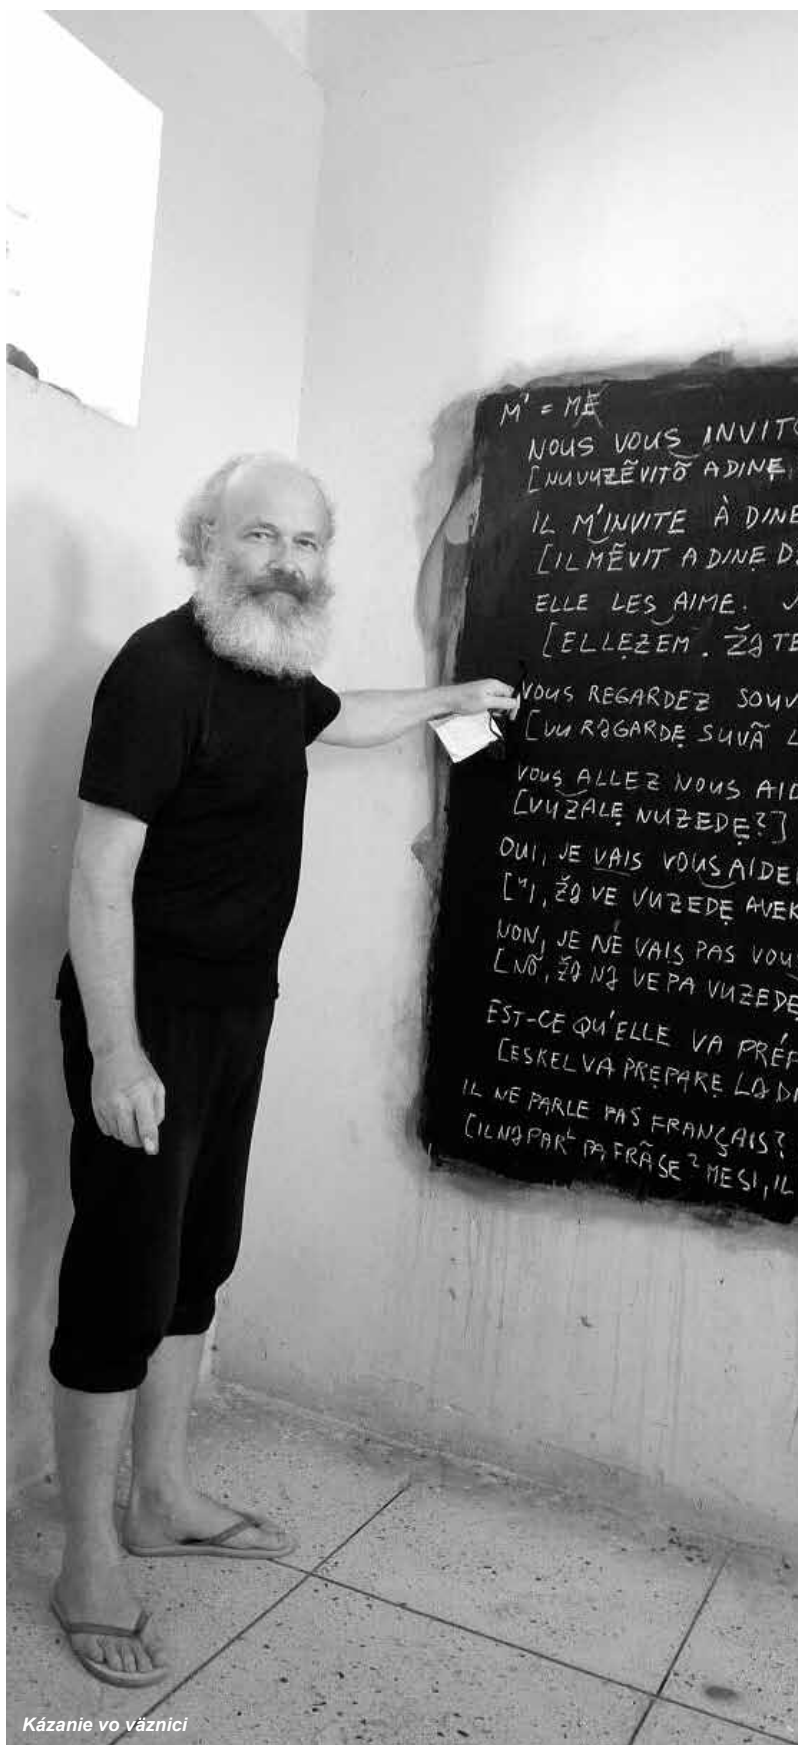 M' = ME
NOUS VOUS INVITO
[NUVUZẼVITÕ ADINẸ
IL M'INVITE À DINE
[ILMẼVIT A DINẸ D
ELLE LES AIME. J
[ELLẸZEM. ŽƏ TE
VOUS REGARDEZ SOUV
[VU RƏGARDẸ SUVÃ L
VOUS ALLEZ NOUS AID
[VUZALẸ NUZEDẸ?]
OUI, JE VAIS VOUS AIDE
ŽƏ VE VUZEDẸ AVEK
NON, JE NE VAIS PAS VOU
[NÕ, ŽƏ NƏ VEPA VUZEDẸ
EST-CE QU'ELLE VA PRÉP
[ESKELVA PRẸPARẸ LƏ DI
IL NE PARLE PAS FRANÇAIS?
[ILNƏPARL PA FRÃSE? MESI, IL
Kázanie vo väznici